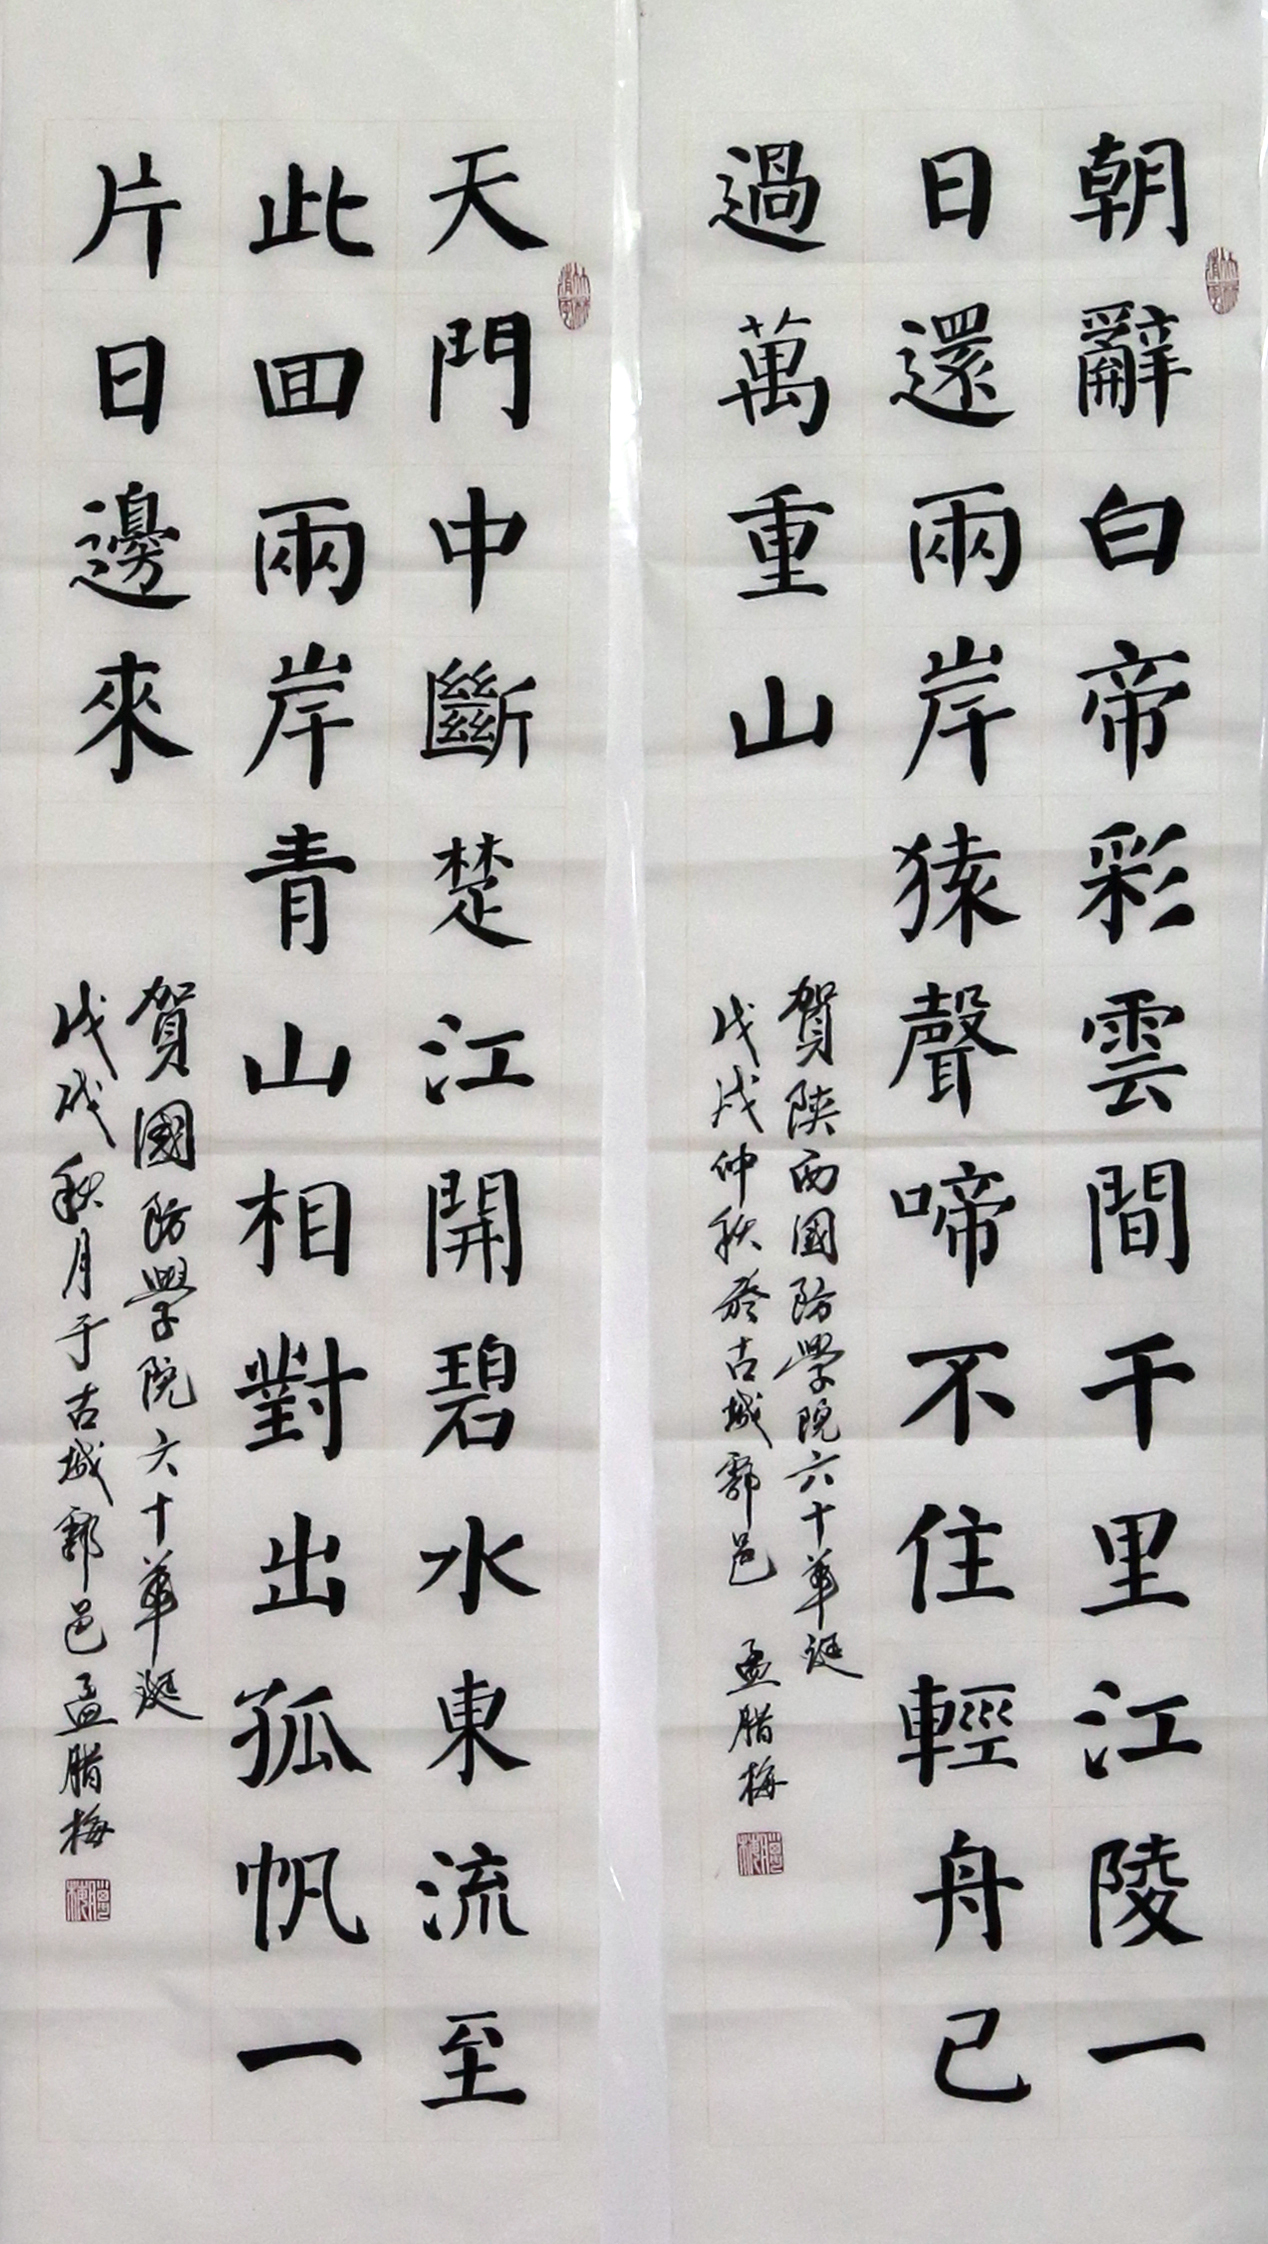 朝辭白帝彩雲間千里江陵一
日還兩岸猿聲啼不住輕舟已
過萬重山
賀陝西國防學院六十華誕
戊戌仲秋於古城鄠邑 孟腊梅
天門中斷楚江開碧水東流至
此回兩岸青山相對出孤帆一
片日邊來
賀國防學院六十華誕
戊戌秋月于古城鄠邑孟腊梅